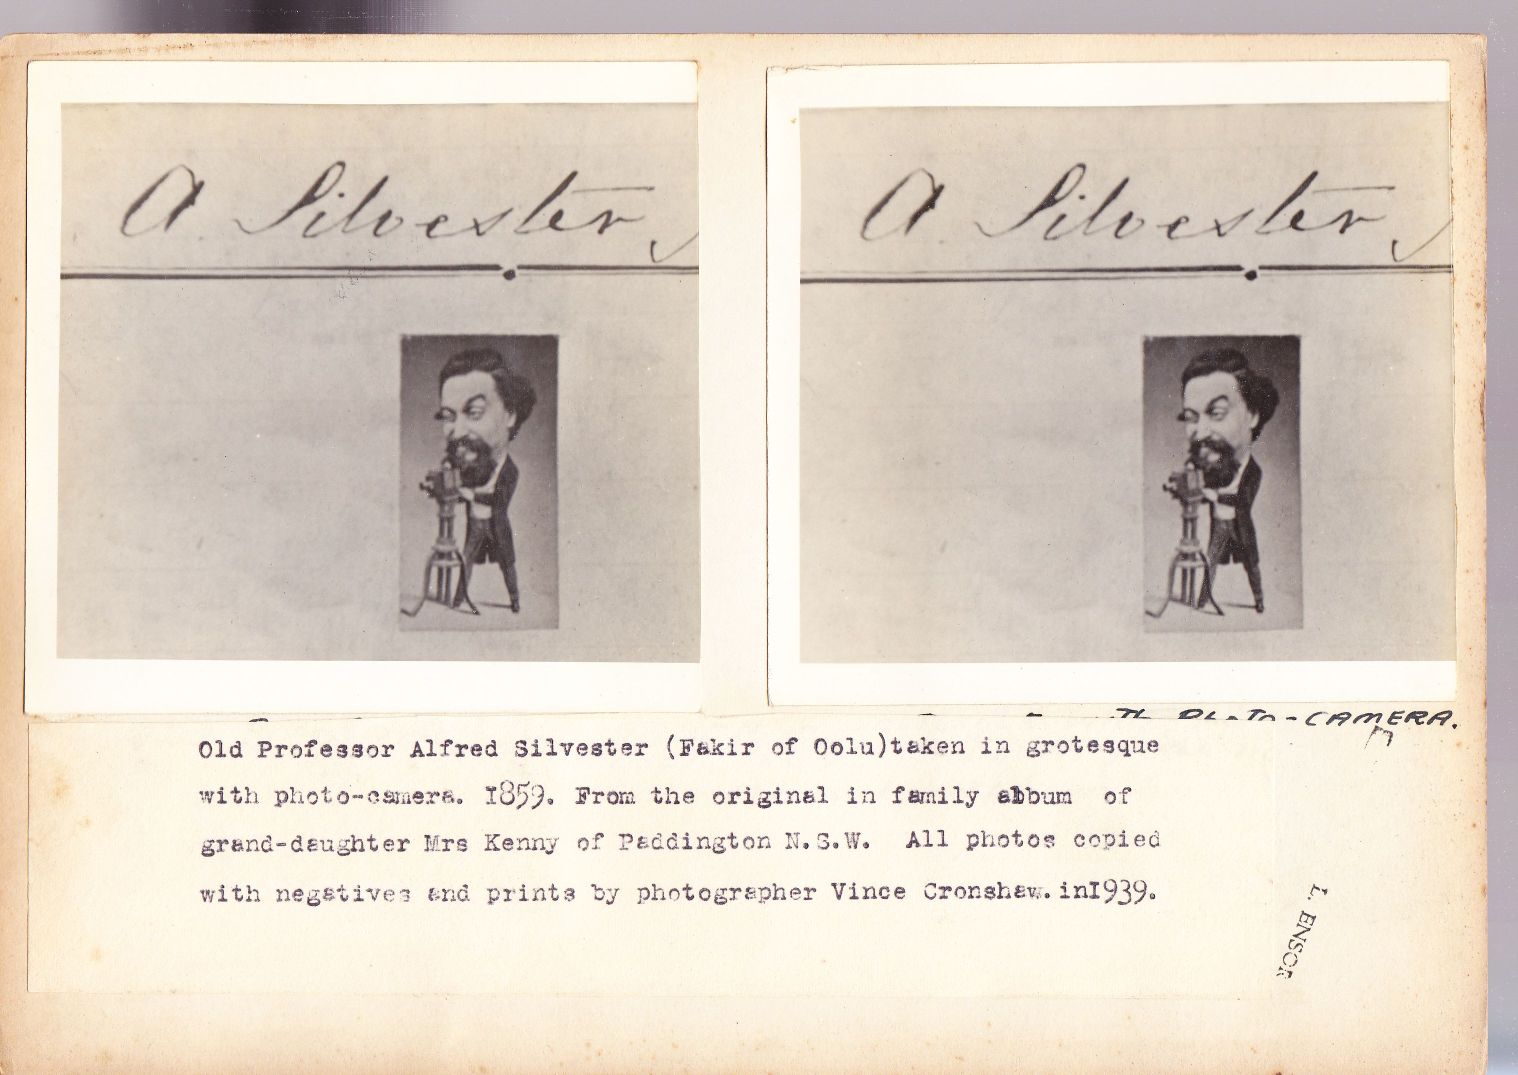 A Silvester
A Silvester
PHOTO-CAMERA.
Old Professor Alfred Silvester (Fakir of Oolu)taken in grotesque
with photo-camera. I859. From the original in family album of
grand-daughter Mrs Kenny of Paddington N.S.W. All photos copied
with negatives and prints by photographer Vince Cronshaw. inI939.
ENSOR